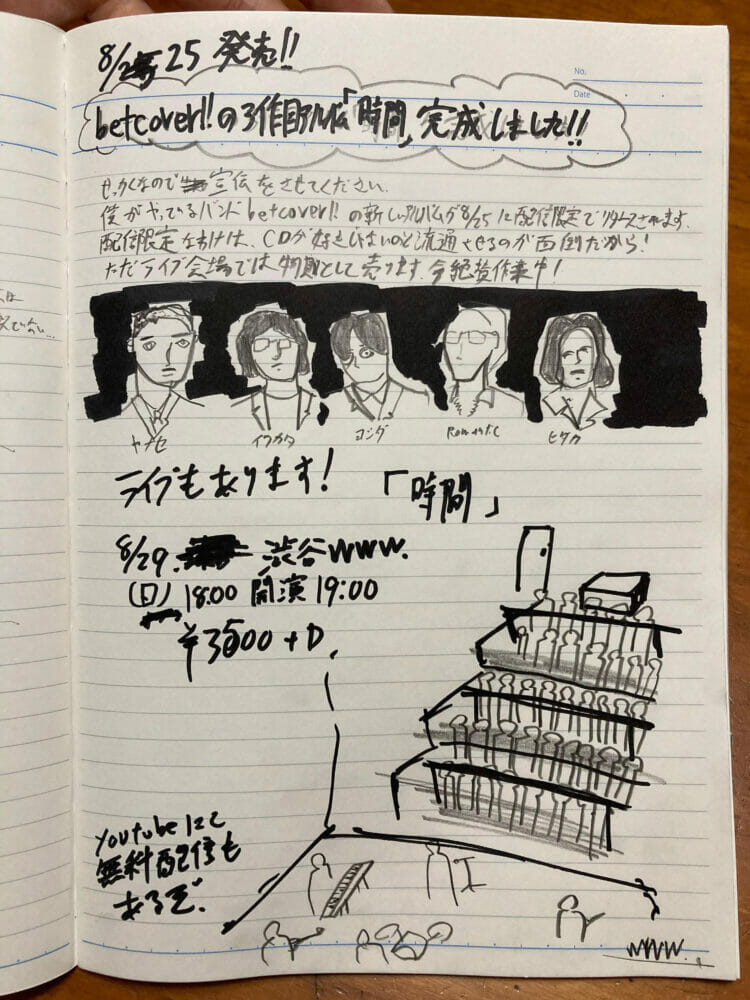 8/25 発売!!
No.
Date
betcover!!の3作目アルバム「時間」完成しました!!
せっかくなので宣伝をさせてください.
僕がやっているバンドbetcover!!の新しいアルバムが8/25に配信限定でリリースされます.
配信限定なわけは、CDが好きじゃないのと流通させるのが面倒だから!
ただライブ会場では物販として売ります.今絶賛作業中!
ヤナセ
イワカタ
ヨシダ
Romantic
ヒダカ
ライブもあります!
「時間」
8/29. 渋谷www.
(日) 18:00 開演 19:00
¥3500+D.
youtubeにて
無料配信も
あるぞ.
www.